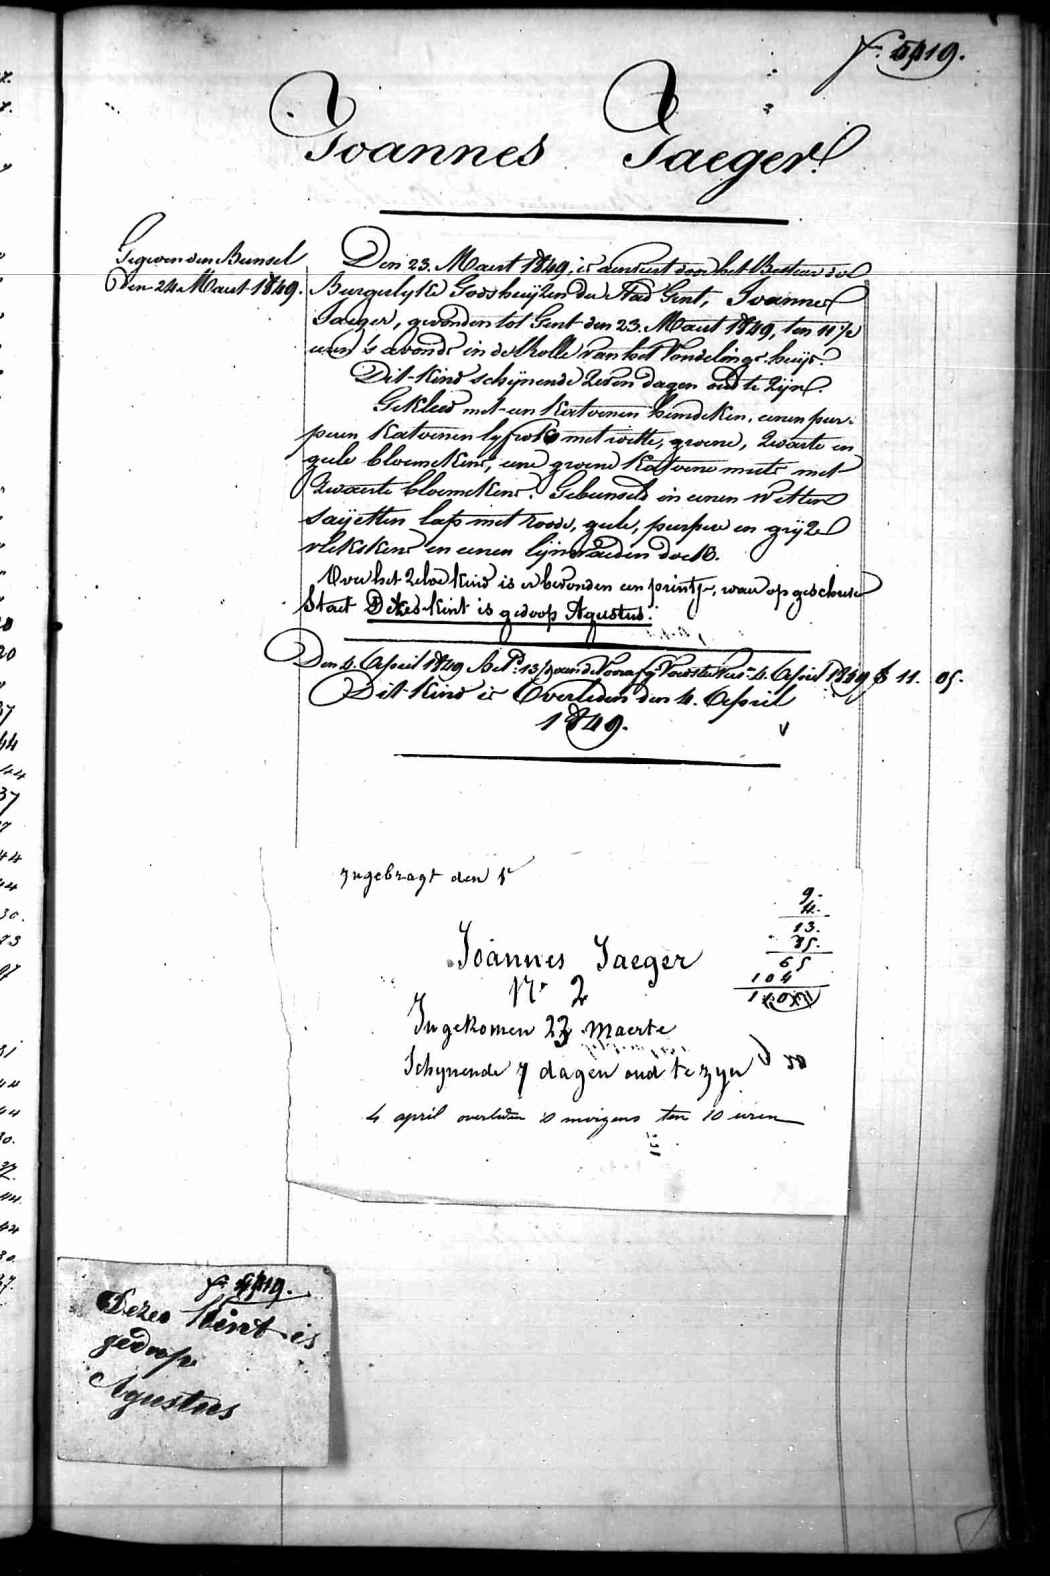 Joannes Jaeger.
Gegeven den Bunsel
Den 24 Maert 1849.
Den 23. Maert 1849, is aenveert door het Bestier der
Burgerlyke Godshuijzen der Stad Gent, Joannes
Jaeger, gevonden tot Gent den 23. Maert 1849, ten 11 1/2
uren 's avonds in de Rolle van het Vondelings-huijs.
Dit Kind schijnende Zeven dagen oud te Zijn.
Gekleed met een Katoenen hemdeken, eenen pur-
peren Katoenen lyfrok met witte, groene, Zwarte en
geele bloemekens, eene groene Katoene muts met
Zwaerte bloemekens. Gebunseld in eenen Witten
Saijetten lap met roode, geele, purpere en grijze
vlekskens en eenen lijnwaeden doek.
Over het Zelve kind is er bevonden een printje, waer op geschreven
Staet Dezes-kint is gedoop Agustus.
Den 4. April 1849 4. April 1849 11. 05.
Dit Kind is Overleden den 4. April
1849.
Ingebragt den 5
9.
4.
13.
65
104
Joannes Jaeger
Nr 2
Ingekomen 23 maerte
Schynende 7 dagen oud te zyn
4 april overleden 's morgens ten 10 uren
Dezes kint is
gedoop
Agustus